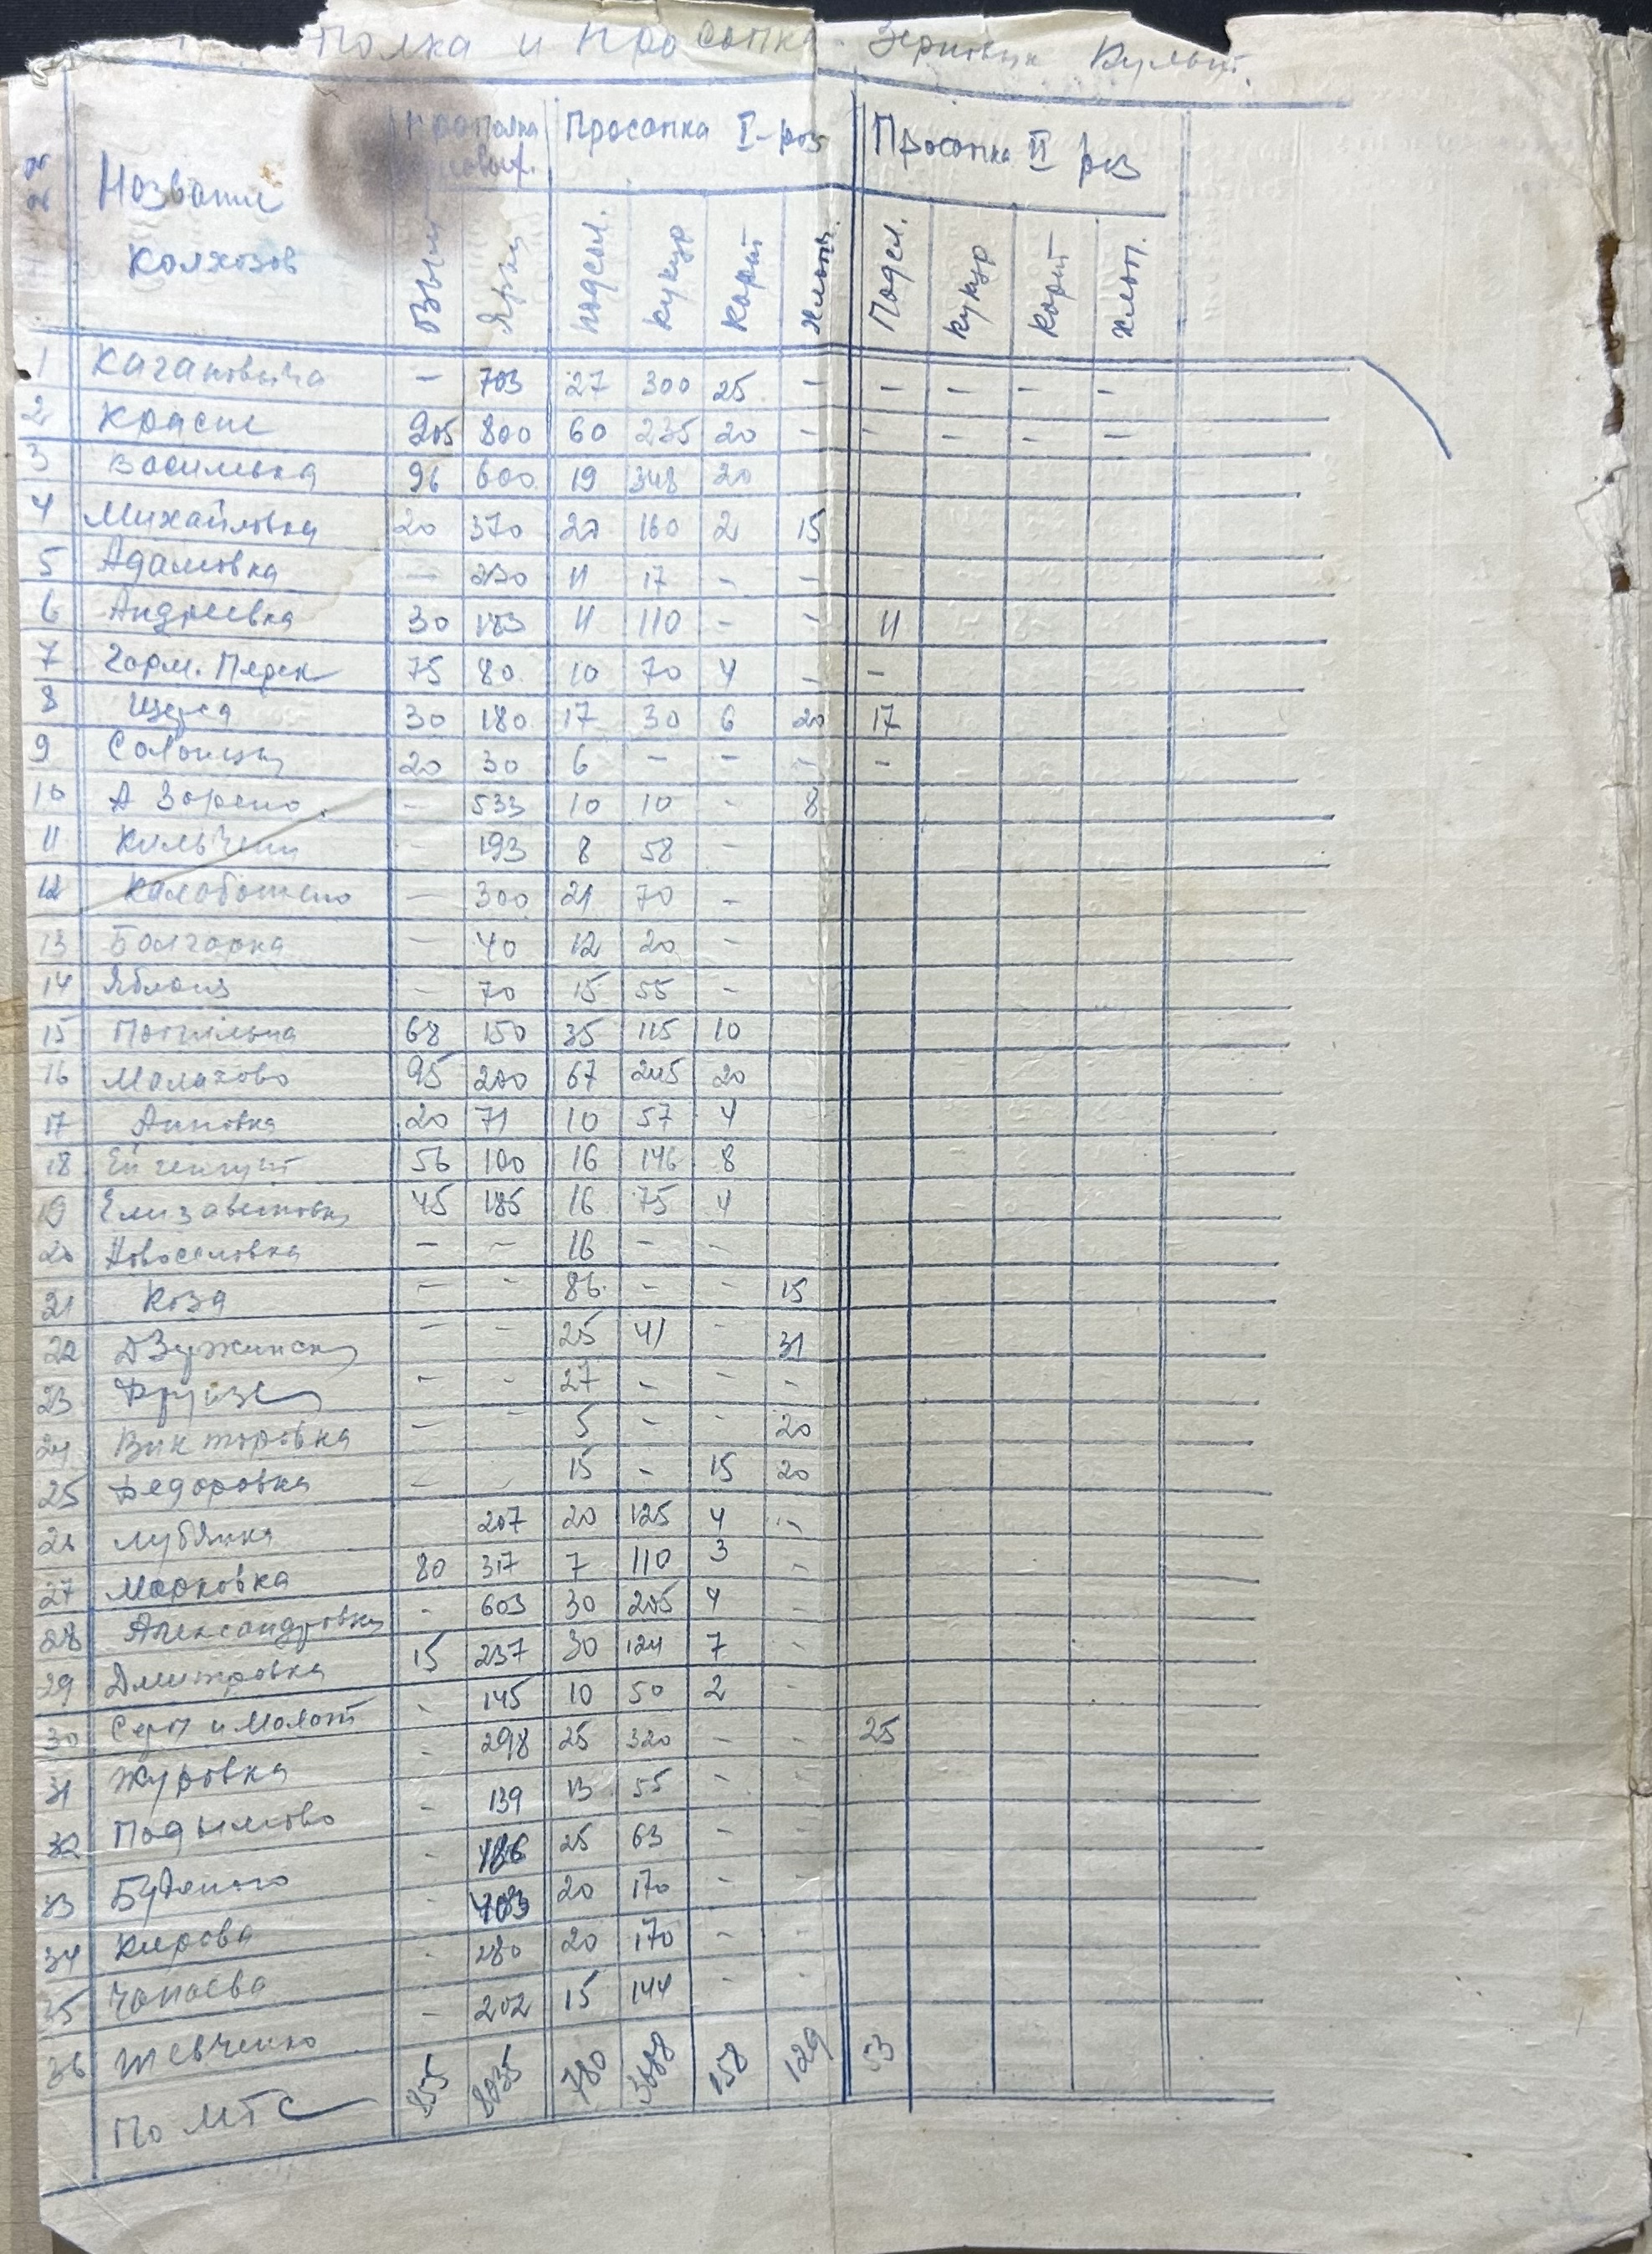 полка и просапка Зерновых Культ.
Названи колхозов Прополка Просапка I-раз Просапка II раз
Озим Ярых подсол. кукур карт хлоп. Подсл. кукур карт хлоп.
1 Кагановича - 703 27 300 25 - - - - -
2 Красне 205 800 60 235 20 - - - - -
3 Василька 96 600 19 348 20
4 Михайловка 20 370 27 160 2 15
5 Адамовка - 230 11 17 - -
6 Андреевка 30 183 11 110 - - 11
7 Горм. Перек 75 80 10 70 4 - -
8 Щорса 30 180 17 30 6 20 17
9 20 30 6 - - - -
10 А Зорено - 533 10 10 - 8
11 Кильчени - 193 8 58 -
12 Калабатено - 300 21 70 -
13 Болгарка - 40 12 20 -
14 Яблоня - 70 15 55 -
15 Погильна 68 150 35 115 10
16 Малахово 95 200 67 245 20
17 Анновка 20 71 10 57 4
18 56 100 16 146 8
19 Елизаветовка 45 185 16 75 4
20 Новоселовка - - 16 - -
21 Коза - - 86 - - 15
22 Дзержинск - - 25 41 - 31
23 Фрунзе - - 27 - - -
24 Викторовка - - 5 - - 20
25 Федоровка - - 15 - 15 20
26 Лубянка 207 20 125 4 -
27 Марковка 80 317 7 110 3 -
28 Александровка - 603 30 205 4 -
29 Дмитровка 15 237 30 124 7 -
30 Серп и Молот - 145 10 50 2 -
31 Журовка - 298 25 320 - - 25
32 Подымово - 139 13 55 -
33 Буденого - 186 25 63 - -
34 Кирова - 403 20 170 - -
35 Чапаева - 280 20 170 - -
36 Шевченко - 202 15 144 - -
По МТС 855 8035 780 3688 158 129 53